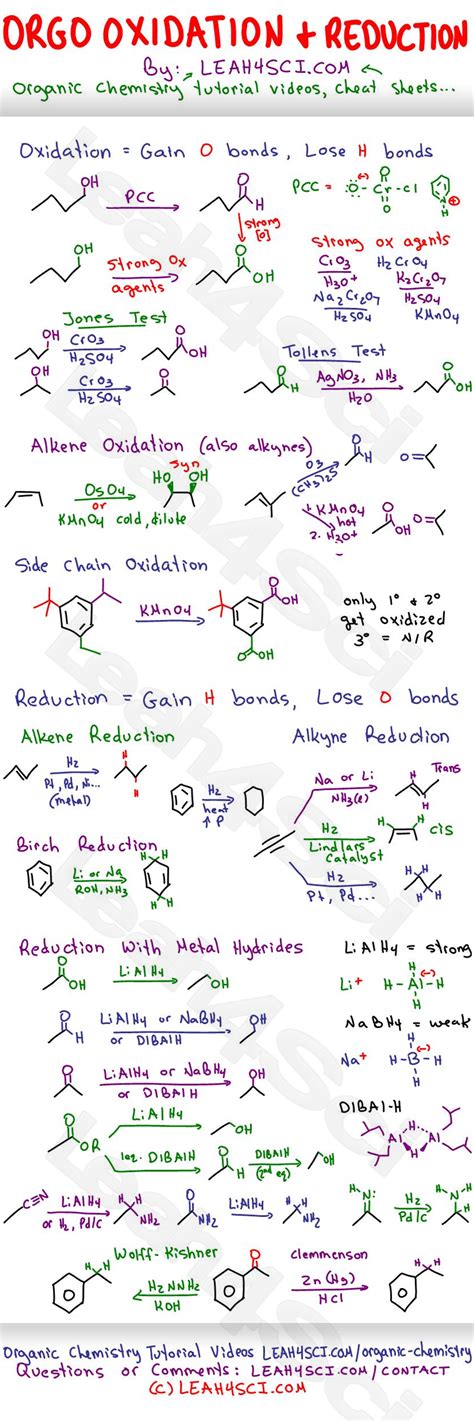 ORGO OXIDATION + REDUCTION
By: LEAH4SCI.COM
Organic Chemistry tutorial videos, cheat sheets...
Oxidation = Gain O bonds, Lose H bonds
OH PCC O H PCC = O Cr Cl N H
strong [O]
OH Strong Ox agents O OH
Strong ox agents
CrO3 H2CrO4
H3O+ K2Cr2O7
Na2Cr2O7 H2SO4
H2SO4 KMnO4
Jones Test
OH CrO3 H2SO4 O OH
OH CrO3 H2SO4 O
Tollens Test
O H AgNO3, NH3 H2O O OH
Alkene Oxidation (also alkynes)
OsO4 or KMnO4 cold, dilute
HO Syn OH
O3 (CH3)2S O H O
1. KMnO4 hot 2. H3O+ O OH O
Side Chain Oxidation
KMnO4 O OH O OH
only 1° & 2°
get oxidized
3° = N/R
Reduction = Gain H bonds, Lose O bonds
Alkene Reduction
H2 Pt, Pd, Ni... (metal) H H
H2 heat ↑ P
Alkyne Reduction
Na or Li NH3(l) H H Trans
H2 Lindlars Catalyst H H cis
H2 Pt, Pd... H H H H
Birch Reduction
Li or Na ROH, NH3 H H H H
Reduction With Metal Hydrides
O OH LiAlH4 OH
O H LiAlH4 or NaBH4 or DIBAlH OH
O LiAlH4 or NaBH4 or DIBAlH OH
LiAlH4 = strong
Li+ H-Al-H H H (-)
NaBH4 = weak
Na+ H-B-H H H (-)
DIBAl-H
Al H H Al
O OR LiAlH4 OH
1eq. DIBAlH O H DIBAlH (2nd eq) OH
C≡N LiAlH4 or H2, Pd/C H H NH2
O NH2 LiAlH4 H H NH2
N: H H2 Pd/C H N H H
Wolff-Kishner
H H H2NNH2 KOH O
Clemmenson
Zn(Hg) HCl H H
Organic Chemistry Tutorial Videos LEAH4SCI.COM/organic-chemistry
Questions or Comments: LEAH4SCI.COM/CONTACT
(C) LEAH4SCI.COM
Leah4Sci